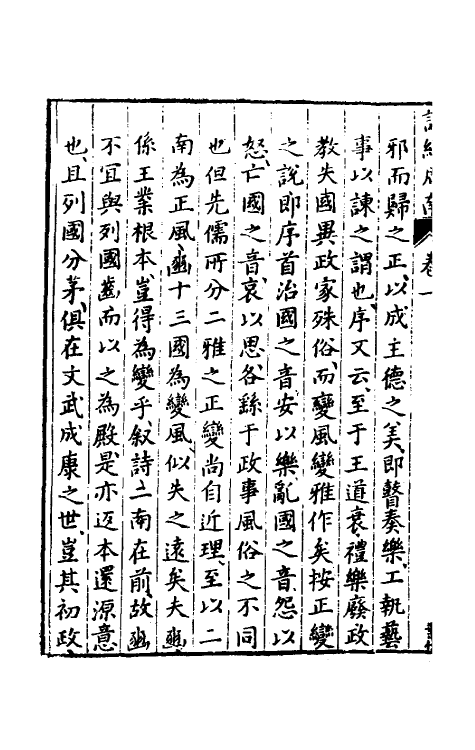 卷一
邪而歸之正以成主德之美即瞽奏樂工執藝
事以諫之謂也序又云至于王道衰禮樂廢政
教失國異政家殊俗而變風變雅作矣按正變
之說即序首治國之音安以樂亂國之音怨以
怒亡國之音哀以思各繇于政事風俗之不同
也但先儒所分二雅之正變尚自近理至以二
南為正風豳十三國為變風似失之遠矣夫豳
係王業根本豈得為變乎叙詩二南在前故豳
不宜與列國齒而以之為殿是亦返本還源意
也且列國分茅俱在文武成康之世豈其初政